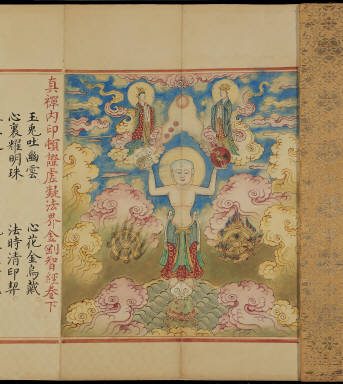 真禪内印頓證虛凝法界金剛智經卷下
玉兎吐幽雲 心花金烏藏
心裏耀明珠 法時清印契